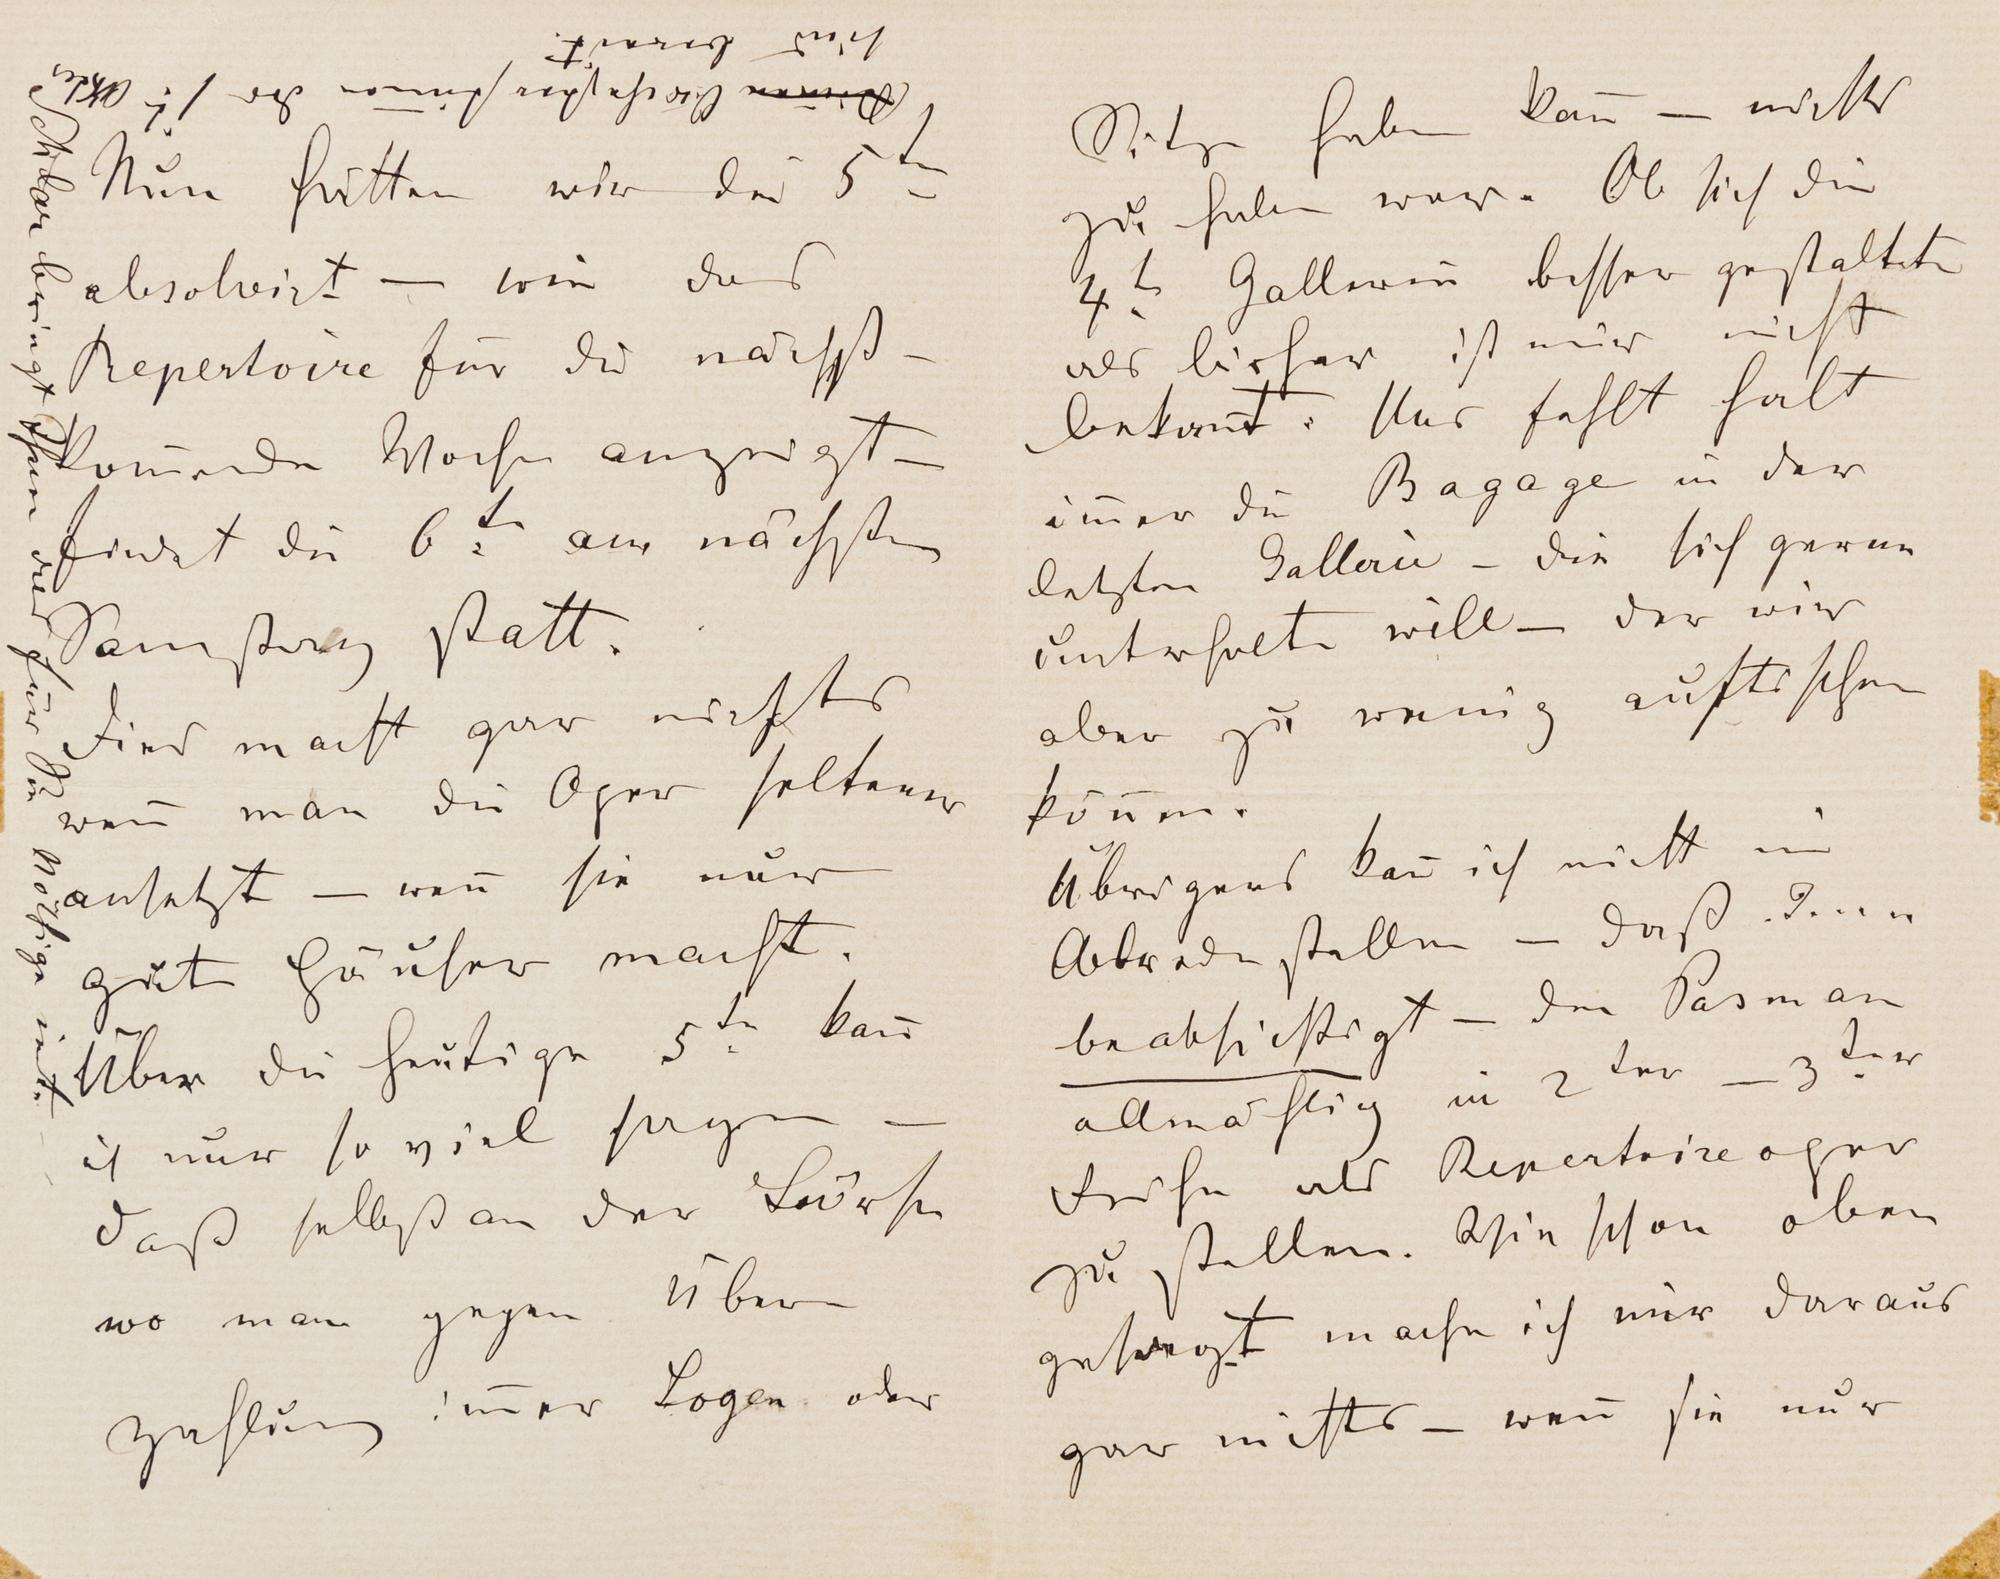 Nun hätten wir die 5te
absolvirt — wie das
Repertoire für die nächst-
kom̅ende Woche anzeigt —
findet die 6te am nächsten
Samstag statt.
Dies macht gar nichts
wen̅ man die Oper seltener
ansetzt — wen̅ sie nur
gute Häuser macht.
Über die heutige 5te kan̅
ich nur so viel sagen —
daß selbst an der Börse
wo man gegen Über-
zahlung im̅er Logen oder
Sitze haben kan̅ — nichts
zu haben war. Ob sich die
4te Gallerie besser gestaltete
als bisher ist mir nicht
bekan̅t. Uns fehlt halt
im̅er die Bagage in der
letzten Gallerie — die sich gerne
unterhalten will — der wir
aber zu wenig auftischen
kön̅en.
Übrigens kan̅ ich nicht in
Abrede stellen — daß
beabsichtigt — den Pasman
allmählig in 2ter — 3ter
Reihe als Repertoireoper
zu stellen. Wie schon oben
gesagt mache ich mir daraus
gar nichts — wen̅ sie nur
bringt Ihnen das für Sie Nötige mit.
sind bereit.